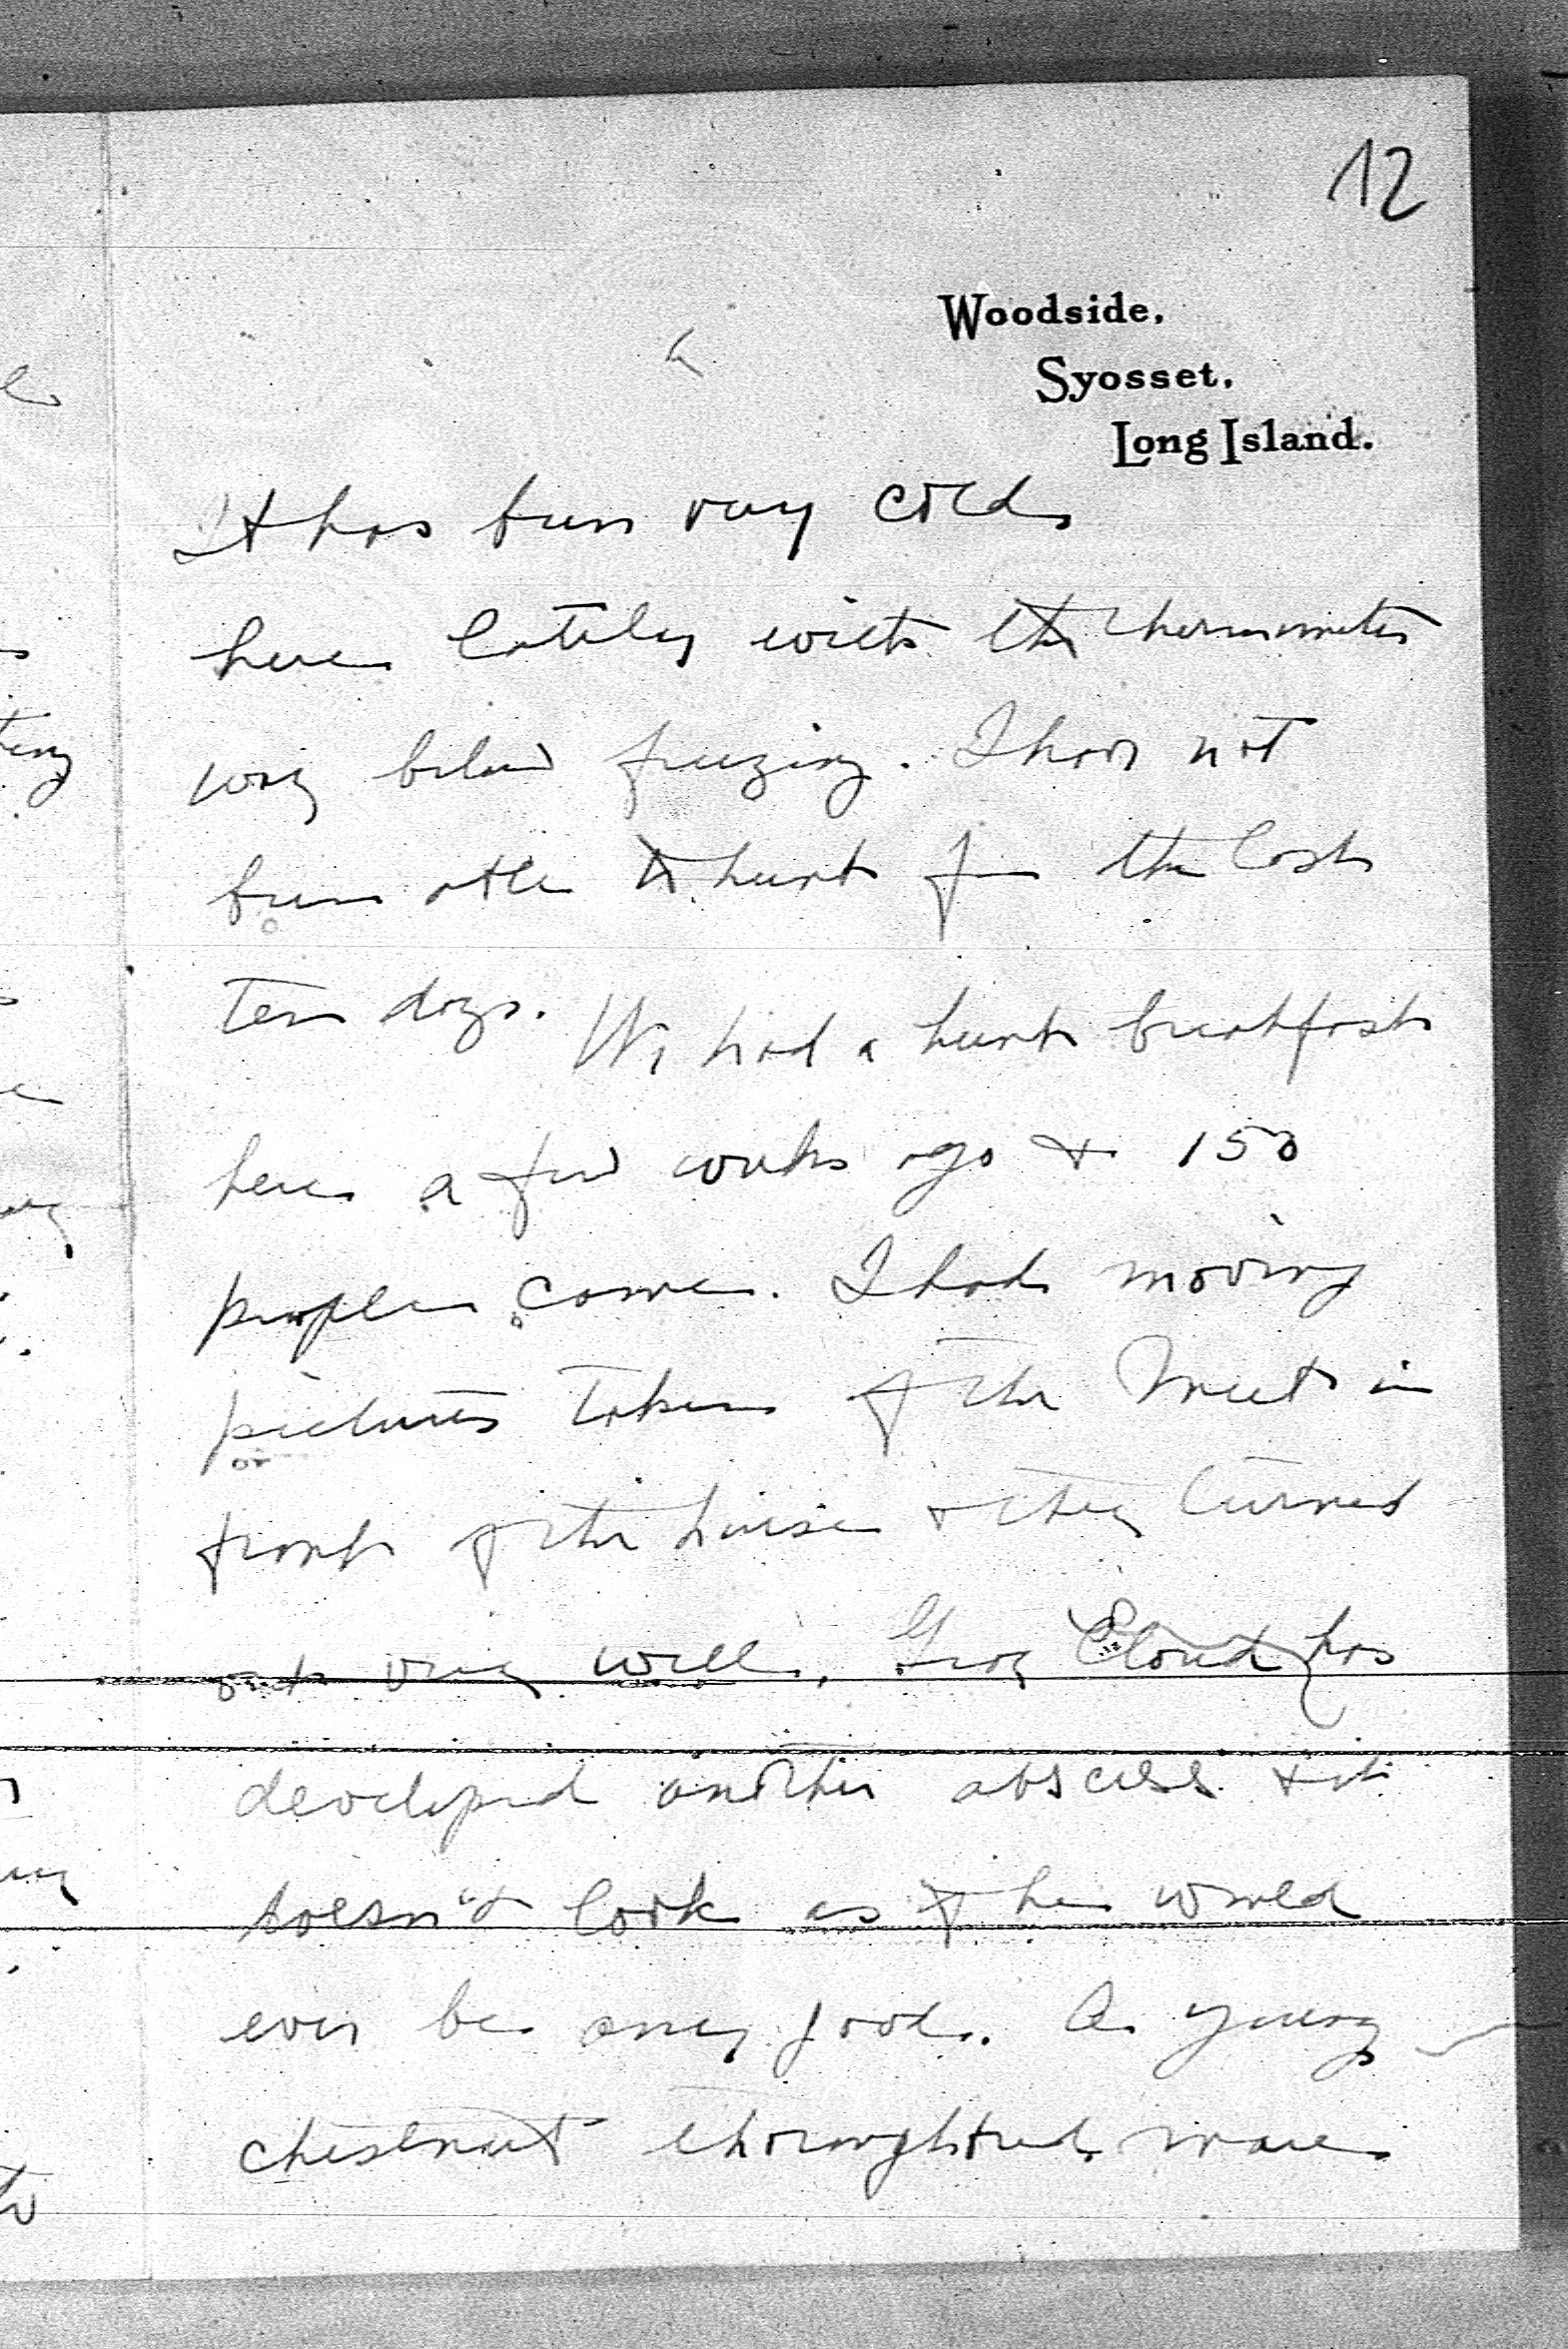 12
Woodside,
Syosset,
Long Island.
It has been very cold
here lately with the thermometer
way below freezing. I have not
been able to hunt for the last
ten days. We had a hunt breakfast
here a few weeks ago & 150
people came. I had moving
pictures taken of the Meet in
front of the house & they turned
out very well. Gray Cloud has
developed another abscess & it
doesn't look as if he would
ever be any good. A young
chestnut thoroughbred mare